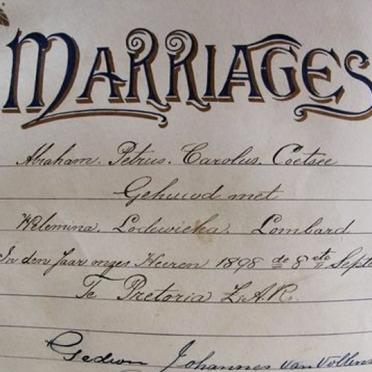 MARRIAGES
Abraham. Petrus. Carolus. Coetsee
Gehuwd met
Welemina. Lodewicka. Lombard
In den Jaar onzes Heeren 1898 de 8ste Septe
Te Pretoria Z.A.R.
Gedeon Johannes van Vollens